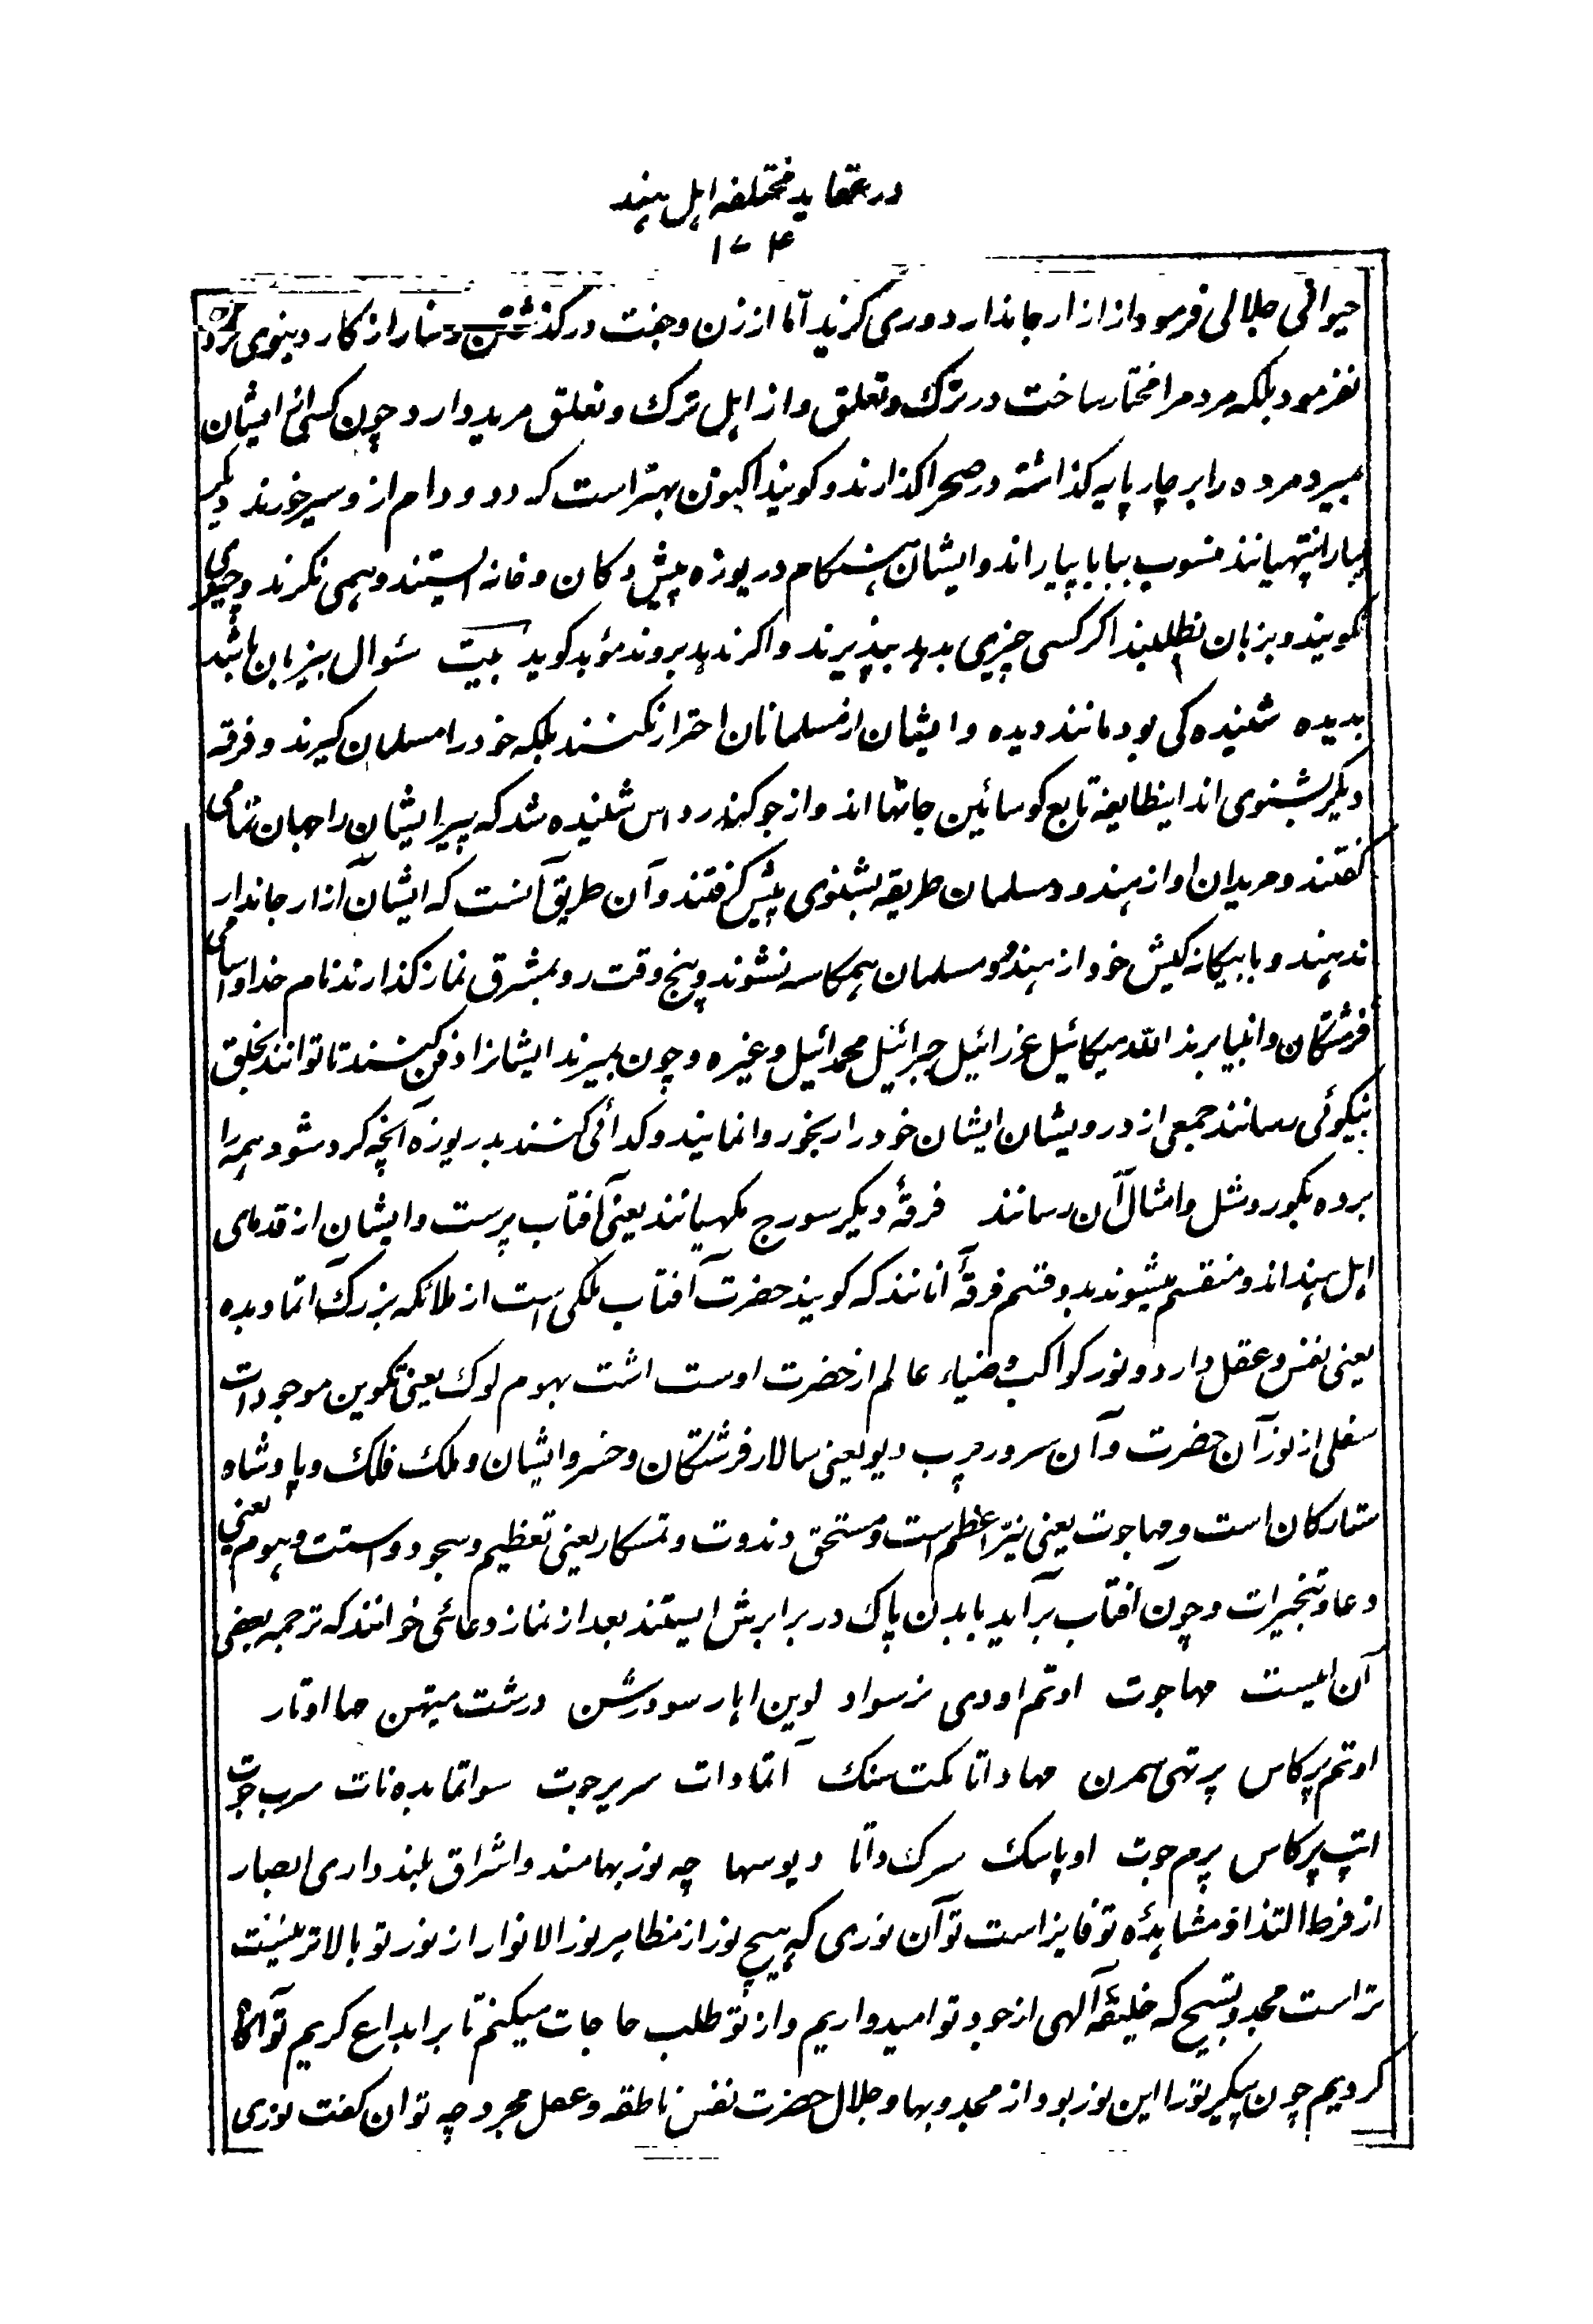 در عقاید مختلفه اہل ہند
۱۷۴
حیوانی جلالی فرمود از ازار جاندار دوری کزید اما از زن و جفت درکذشتن و نیار از کار دینوی
نفرمود بلکه مردمرا مختار ساخت در ترک و تعلق و از اہل ترک و تعلق مرید دارد چون کسی از ایشان
میرد مرده را بر چارپایه کذاشته در صحرا کذارند و کویند اکنون بہتر است که دد و دام از و سیر خورند دیکر
پیارا پنتہیانند منسوب ببابا پیارا اند و ایشان ہنکام دریوزه پیش دکان و خانه ایستند و ہمی نکرند و چیزی
نکویند و بزبان نطلبند اکر کسی چیزی بدہد بپذیرند و اکر ندہد بروند مؤبد کوید بیت سئوال بیزبان باشد
بدیده شنیده کی بود مانند دیده و ایشان از مسلمانان احتراز نکنند بلکه خود را مسلمان کیرند و فرقه
دیکر بشنوی اند اینطایفه تابع کوسائین جانہا اند و از جوکہندر داس شنیده شد که پیر ایشان را جہان تنامی
کفتند و مریدان او از ہندو و مسلمان طریقه بشنوی پیش کرفتند و آن طریق آنست که ایشان آزار جاندار
ندہند و با بیکانه کیش خود از ہندو و مسلمان ہمکاسه نشوند و پنج وقت رو بمشرق نماز کذارند نام خدا و اسامی
فرشتکان و انبیا برند الله میکائیل عزرائیل جبرائیل محمدائیل و غیره و چون بمیرند ایشانرا دفن کنند تا توانند بخلق
نیکوئی رسانند جمعی از درویشان ایشان خود را رنجور وانمایند و کدائی کنند بدریوزه آنچه کرد شود ہمه را
برده بکور و شل و امثال آن رسانند فرقهٔ دیکر سورج مکہیانند یعنی آفتاب پرست و ایشان از قدمای
اہل ہند اند و منقسم میشوند بدو قسم فرقهٔ انانند که کویند حضرت آفتاب ملکی است از ملائکه بزرک اتما و بده
یعنی نفس و عقل دارد و نور کواکب و ضیاء عالم از حضرت اوست اشت بہوم لوک یعنی تکوین موجودات
سفلی از نور آن حضرت و آن سرور سرب دیو یعنی سالار فرشتکان و خسرو ایشان و ملک فلک و پادشاه
ستارکان است و مہاجوت یعنی نیّر اعظم است و مستحق دندوت و نمسکار یعنی تعظیم و سجود و استت و ہوم یعنی
دعا و تبخیرات و چون آفتاب برآید با بدن پاک در برابرش ایستند بعد از نماز دعائی خوانند که ترجمه بعضی
آن اینست مہاجوت اوتم اودی نرسواد لوین اہار سودرشن درشت میتہن مہااوتار
اوتم پرکاس پرتہی سمرن مہاداتا مکت سنک آتمادات سریر جوت سواتما بده نات سرب جوت
اتپ پرکاس پرم جوت اوپاسک سرک داتا دیوسہا چه نور بہامند و اشراق بلند داری ابصار
از فرط التذاذ مشاہدهٔ تو فایز است تو آن نوری که ہیچ نور از مظاہر نور الانوار از نور تو بالاتر نیست
تراست مجد و تسبیح که خلیفهٔ آلہی از جود تو امیدواریم و از تو طلب حاجات میکنم تا بر ابداع کریم تو آکاه
کردیم چون پیکر ترا این نور بود از مجد و بہا و جلال حضرت نفس ناطقه و عقل مجرد چه توان کفت نوری